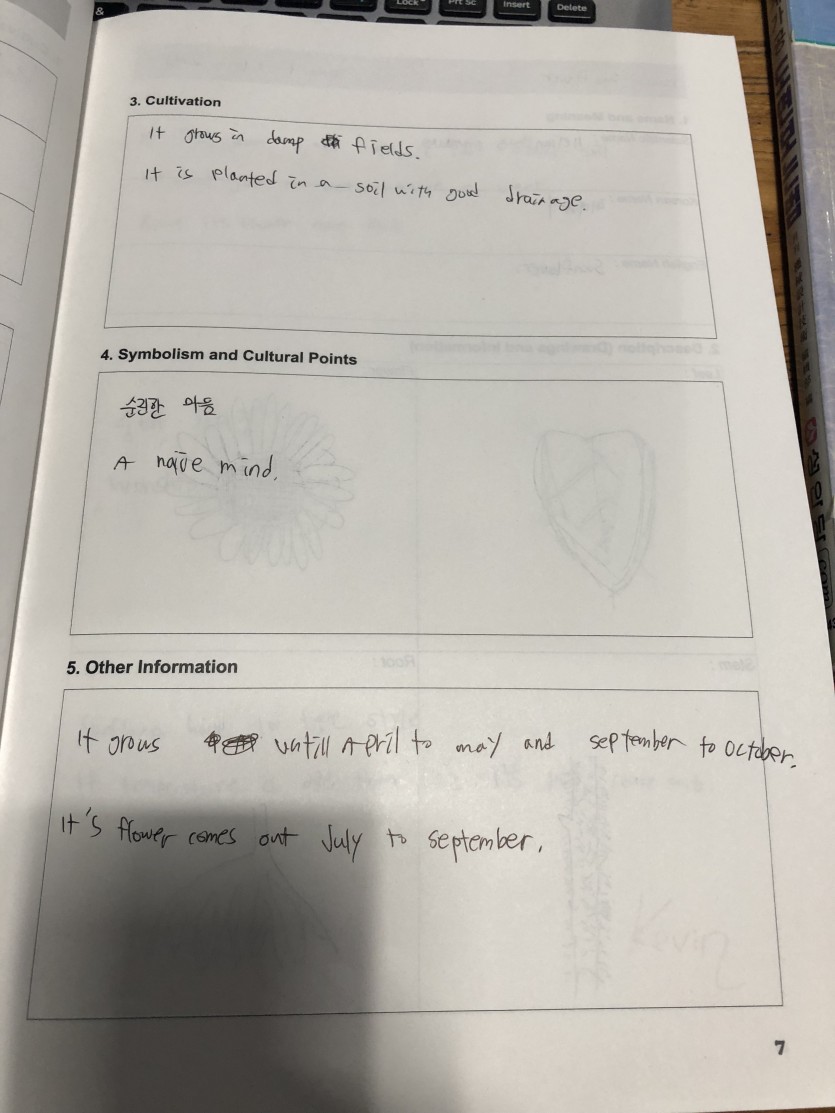 &
Lock
Prt Sc
Insert
Delete
3. Cultivation
It grows in damp fields.
It is planted in a soil with good drainage.
4. Symbolism and Cultural Points
순진한 마음
A naive mind.
5. Other Information
It grows untill April to may and september to October.
It's flower comes out July to september.
7